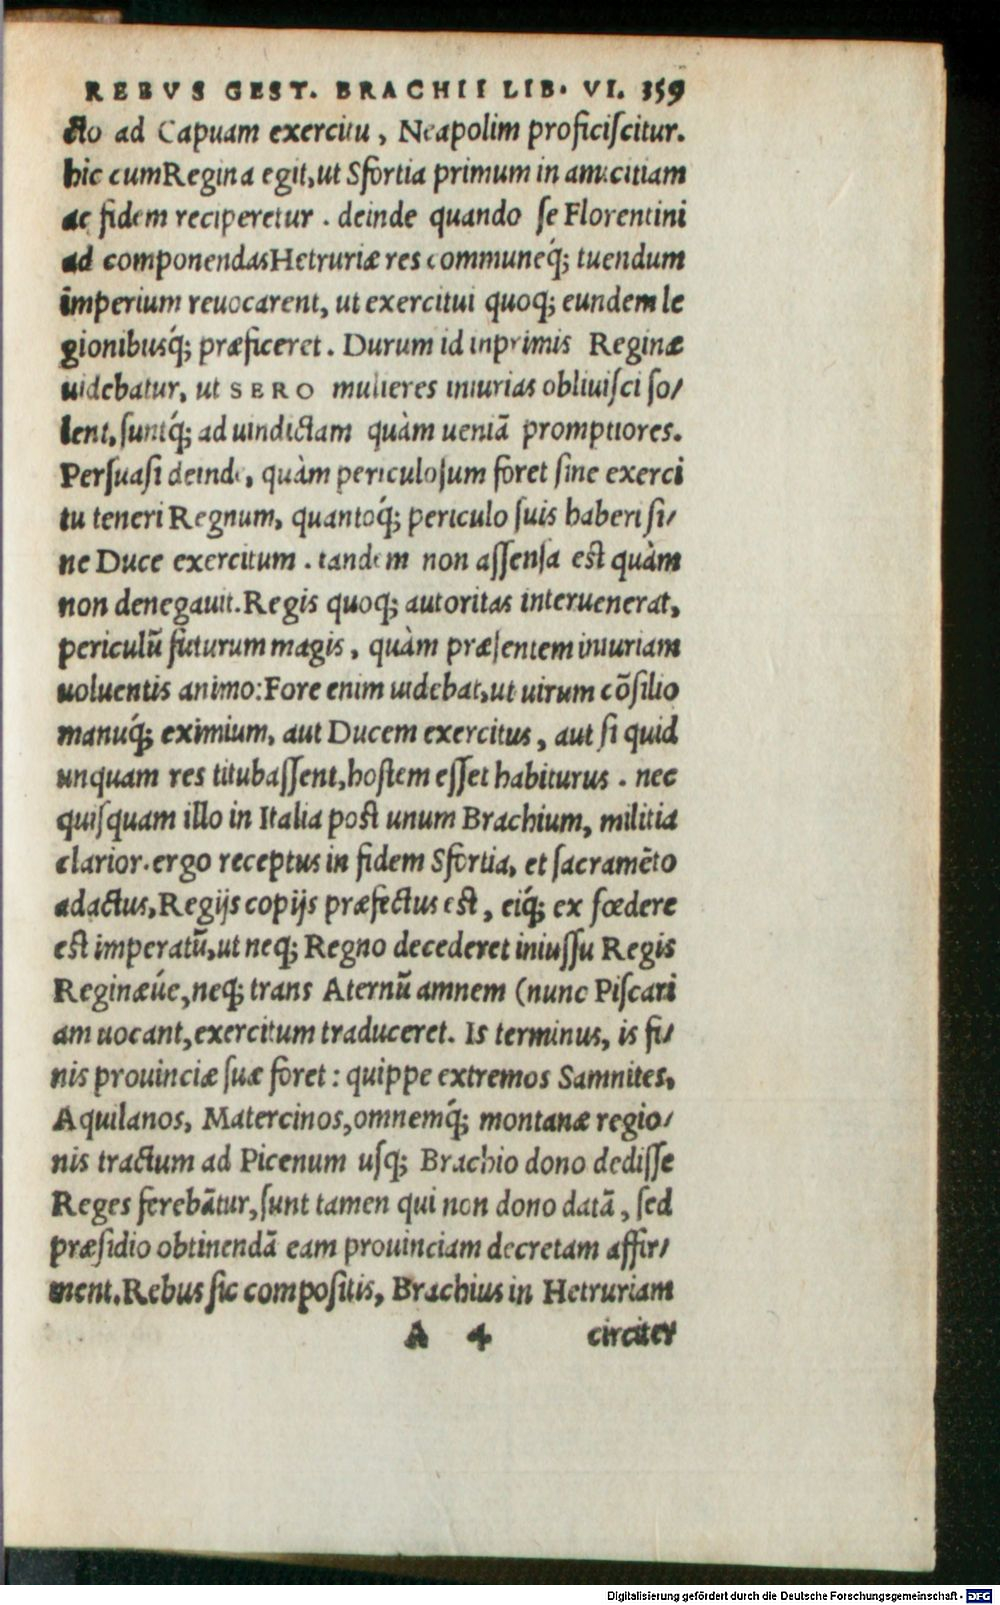 REBVS GEST. BRACHII LIB. VI. 359
cto ad Capuam exercitu, Neapolim proficiſcitur.
hic cumRegina egit,ut Sfortia primum in amicitiam
ac fidem reciperetur. deinde quando ſe Florentini
ad componendasHetruriæ res communeq́; tuendum
imperium reuocarent, ut exercitui quoq; eundem le
gionibusq́; præficeret. Durum id inprimis Reginæ
uidebatur, ut SERO mulieres iniurias obliuiſci ſo/
lent, ſuntq́; ad uindictam quàm ueniã promptiores.
Perſuaſi deinde, quàm periculoſum foret ſine exerci
tu teneri Regnum, quantoq́; periculo ſuis haberi ſi/
ne Duce exercitum. tandem non aſſenſa eſt quàm
non denegauit.Regis quoq; autoritas interuenerat,
periculũ futurum magis, quàm præſentem iniuriam
uoluentis animo:Fore enim uidebat,ut uirum cõſilio
manuq́; eximium, aut Ducem exercitus, aut ſi quid
unquam res titubaſſent,hoſtem eſſet habiturus. nec
quiſquam illo in Italia poſt unum Brachium, militia
clarior.ergo receptus in fidem Sfortia, et ſacramẽto
adactus,Regijs copijs præfectus eſt, eiq́; ex fœdere
eſt imperatũ,ut neq; Regno decederet iniuſſu Regis
Reginæúe,neq; trans Aternũ amnem (nunc Piſcari
am uocant,exercitum traduceret. Is terminus, is fi/
nis prouinciæ ſuæ foret: quippe extremos Samnites,
Aquilanos, Matercinos,omnemq́; montanæ regio/
nis tractum ad Picenum uſq; Brachio dono dediſſe
Reges ferebãtur,ſunt tamen qui non dono datã, ſed
præſidio obtinendã eam prouinciam decretam affir/
ment.Rebus ſic compoſitis, Brachius in Hetruriam
A 4 circiter
Digitalisierung gefördert durch die Deutsche Forschungsgemeinschaft - DFG